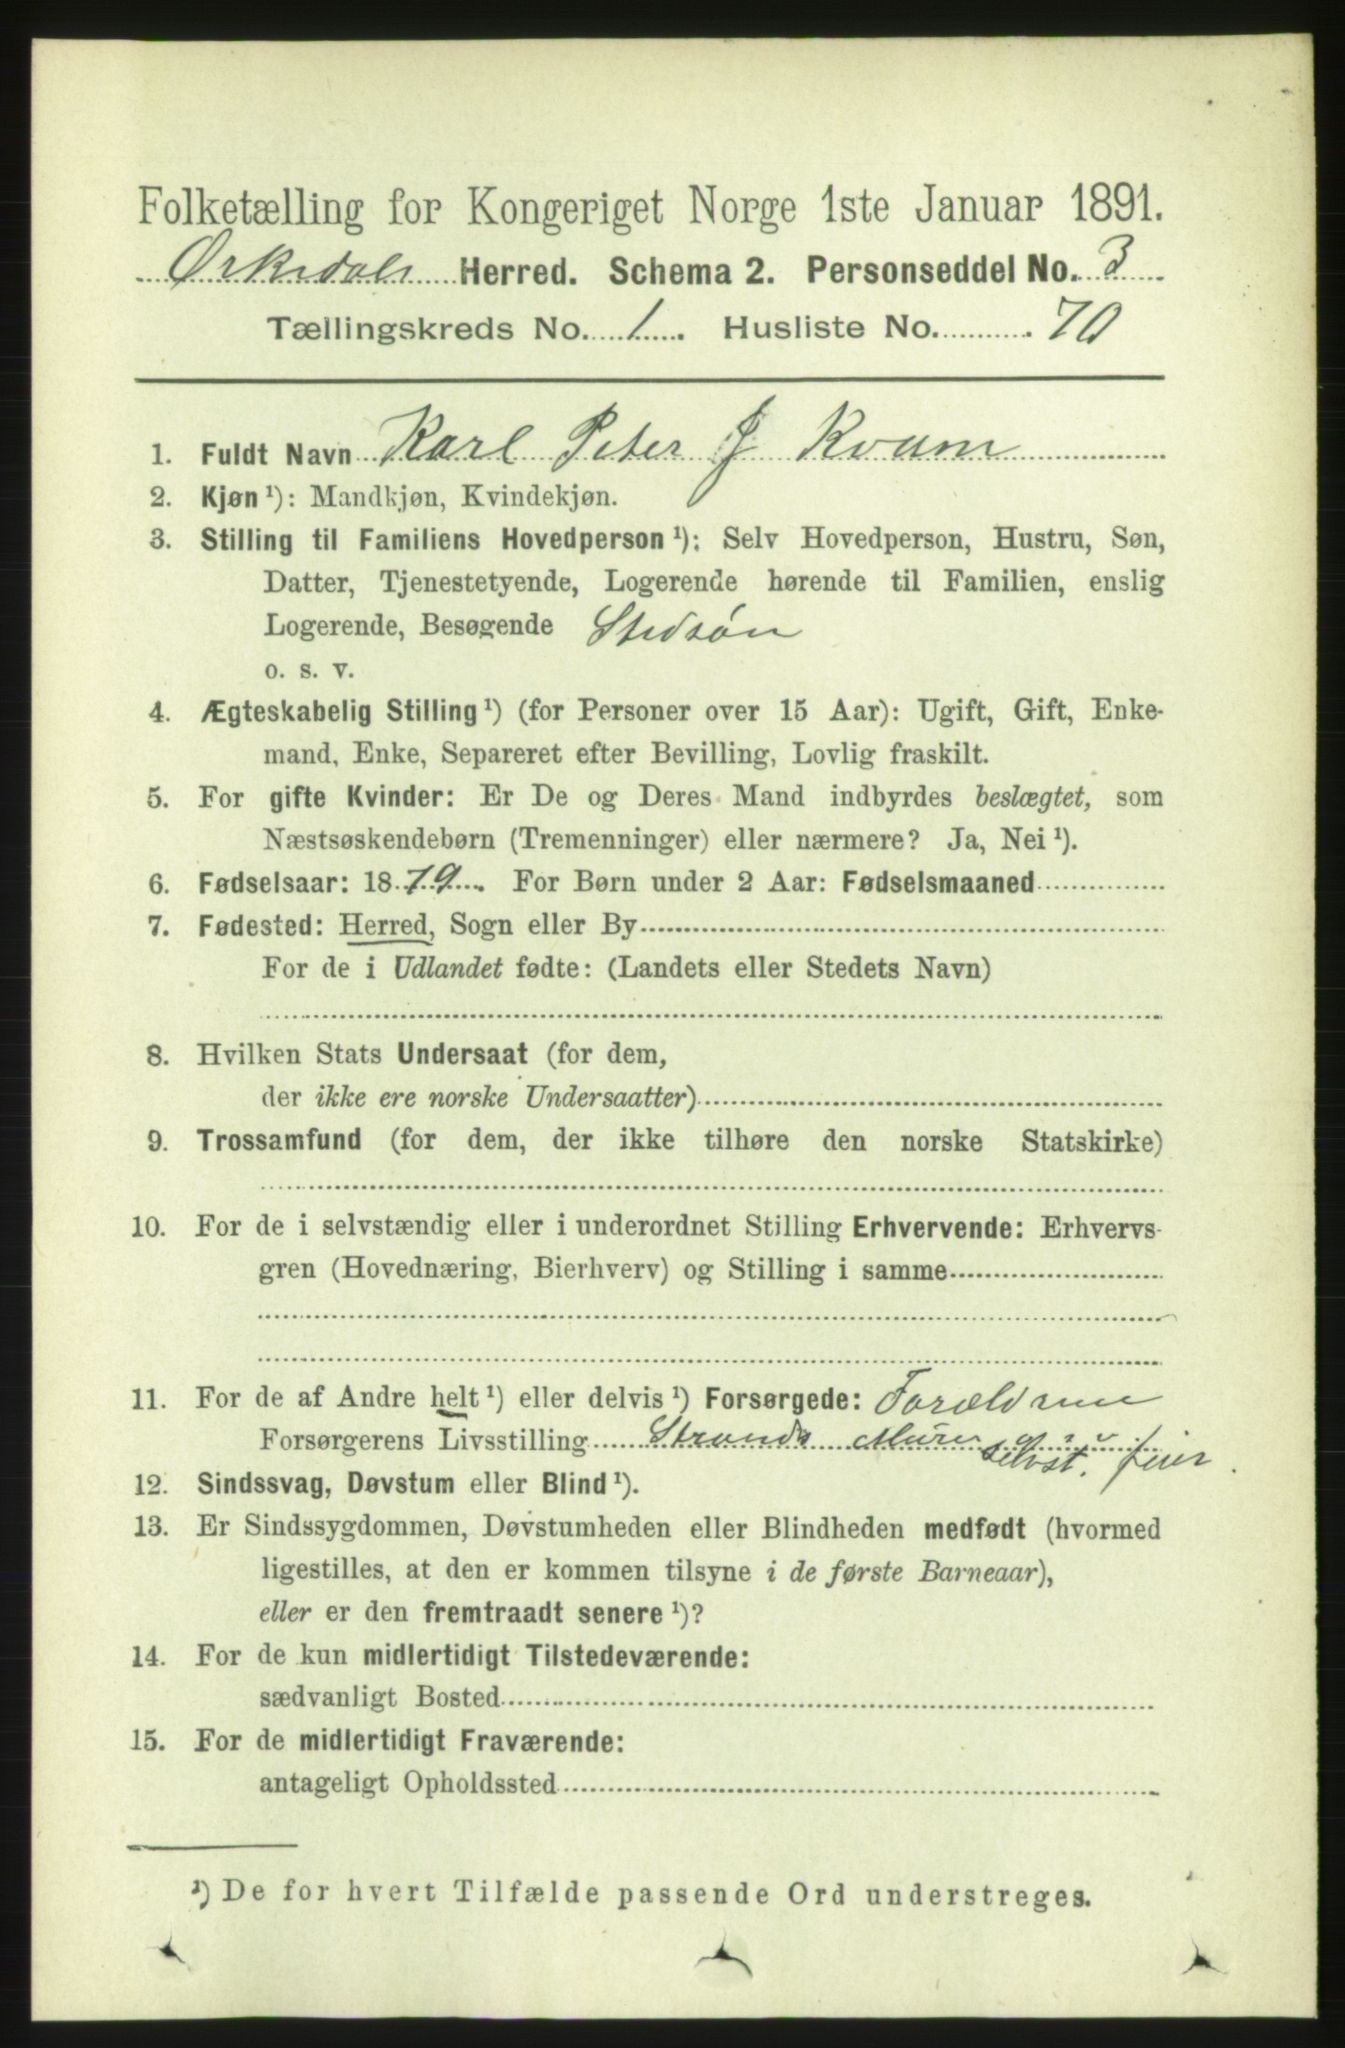 Folketælling for Kongeriget Norge 1ste Januar 1891.
Ørkedals Herred. Schema 2. Personseddel No. 3
Tællingskreds No. 1. Husliste No. 70
1. Fuldt Navn Karl Peter J Kvam
2. Kjøn ¹): Mandkjøn, Kvindekjøn.
3. Stilling til Familiens Hovedperson ¹): Selv Hovedperson, Hustru, Søn,
Datter, Tjenestetyende, Logerende hørende til Familien, enslig
Logerende, Besøgende Stedsøn
o. s. v.
4. Ægteskabelig Stilling ¹) (for Personer over 15 Aar): Ugift, Gift, Enke-
mand, Enke, Separeret efter Bevilling, Lovlig fraskilt.
5. For gifte Kvinder: Er De og Deres Mand indbyrdes beslægtet, som
Næstsøskendebørn (Tremenninger) eller nærmere? Ja, Nei ¹).
6. Fødselsaar: 1879. For Børn under 2 Aar: Fødselsmaaned
7. Fødested: Herred, Sogn eller By
For de i Udlandet fødte: (Landets eller Stedets Navn)
8. Hvilken Stats Undersaat (for dem,
der ikke ere norske Undersaatter)
9. Trossamfund (for dem, der ikke tilhøre den norske Statskirke)
10. For de i selvstændig eller i underordnet Stilling Erhvervende: Erhvervs-
gren (Hovednæring, Bierhverv) og Stilling i samme
11. For de af Andre helt ¹) eller delvis ¹) Forsørgede: Forældrene
Forsørgerens Livsstilling Strands Murer
selvst. feier
12. Sindssvag, Døvstum eller Blind ¹).
13. Er Sindssygdommen, Døvstumheden eller Blindheden medfødt (hvormed
ligestilles, at den er kommen tilsyne i de første Barneaar),
eller er den fremtraadt senere ¹)?
14. For de kun midlertidigt Tilstedeværende:
sædvanligt Bosted
15. For de midlertidigt Fraværende:
antageligt Opholdssted
¹) De for hvert Tilfælde passende Ord understreges.